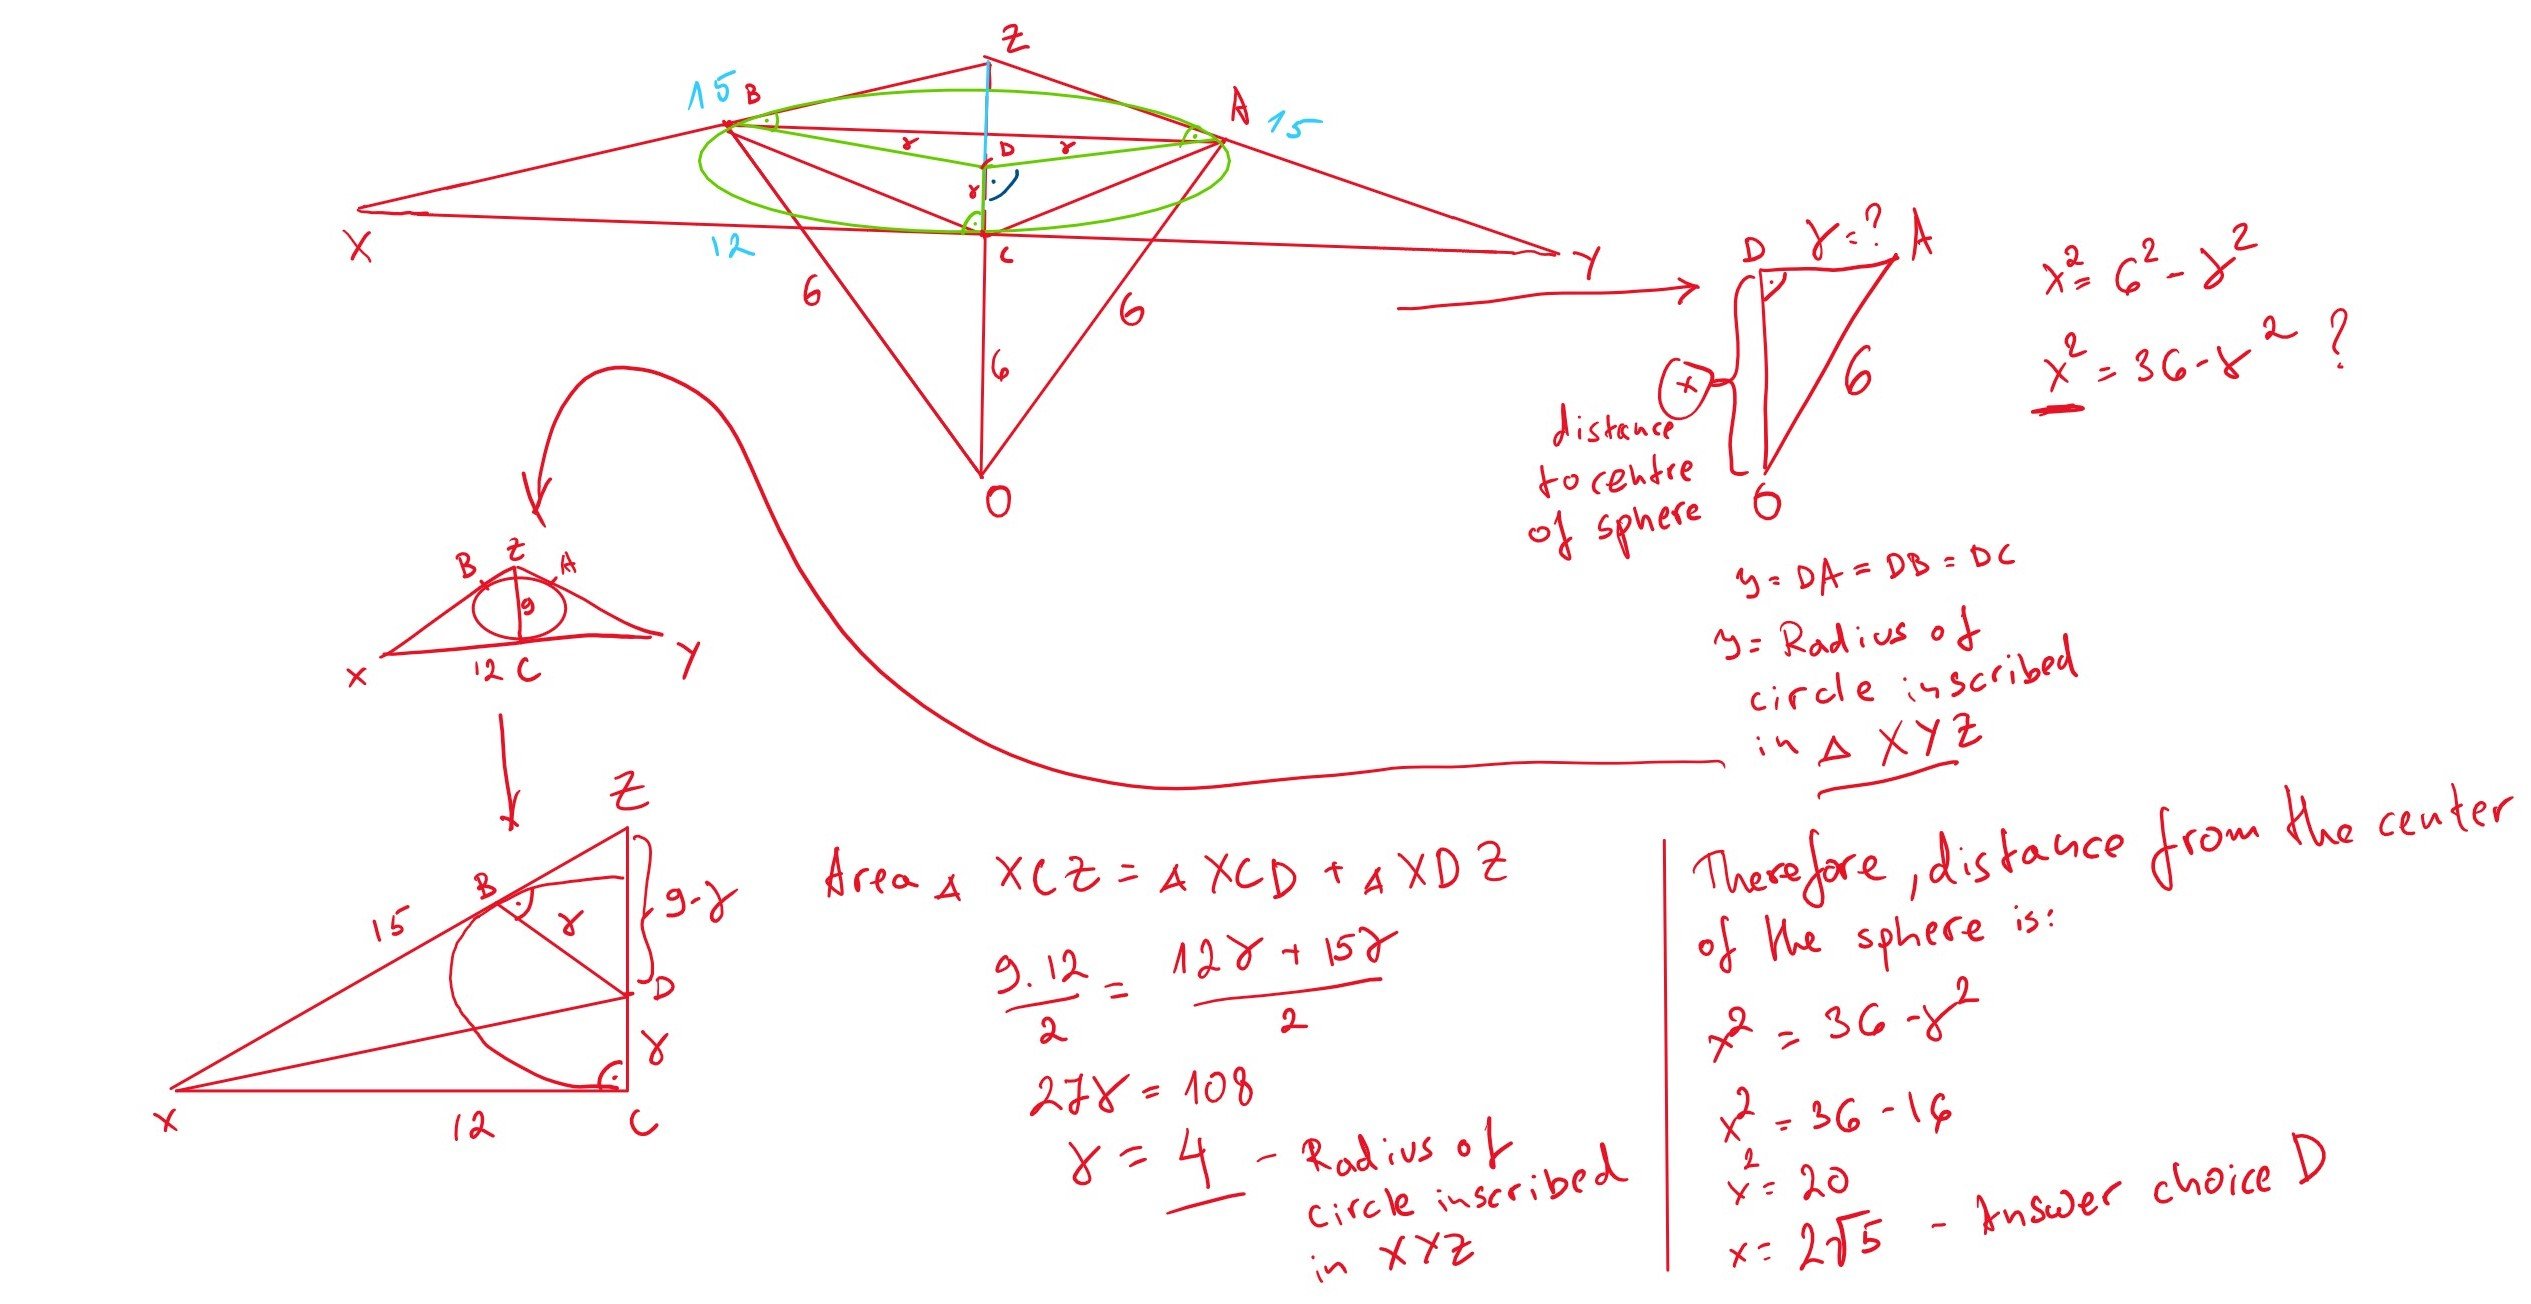 Z
15 B
A 15
r D r
r
X
12
C
Y
6 6
6
O
D r=? A
x
6
distance
to centre
of sphere
O
x²= 6² - r²
x² = 36 - r² ?
y = DA = DB = DC
y = Radius of
circle inscribed
in Δ XYZ
B Z A
9
X 12 C Y
Z
B
15 r 9-r
D
r
X 12 C
Area Δ XCZ = Δ XCD + Δ XDZ
9.12/2 = 12r + 15r/2
27r = 108
r = 4 - Radius of
circle inscribed
in XYZ
Therefore, distance from the center
of the sphere is:
x² = 36 - r²
x² = 36 - 16
x² = 20
x = 2√5 - Answer choice D